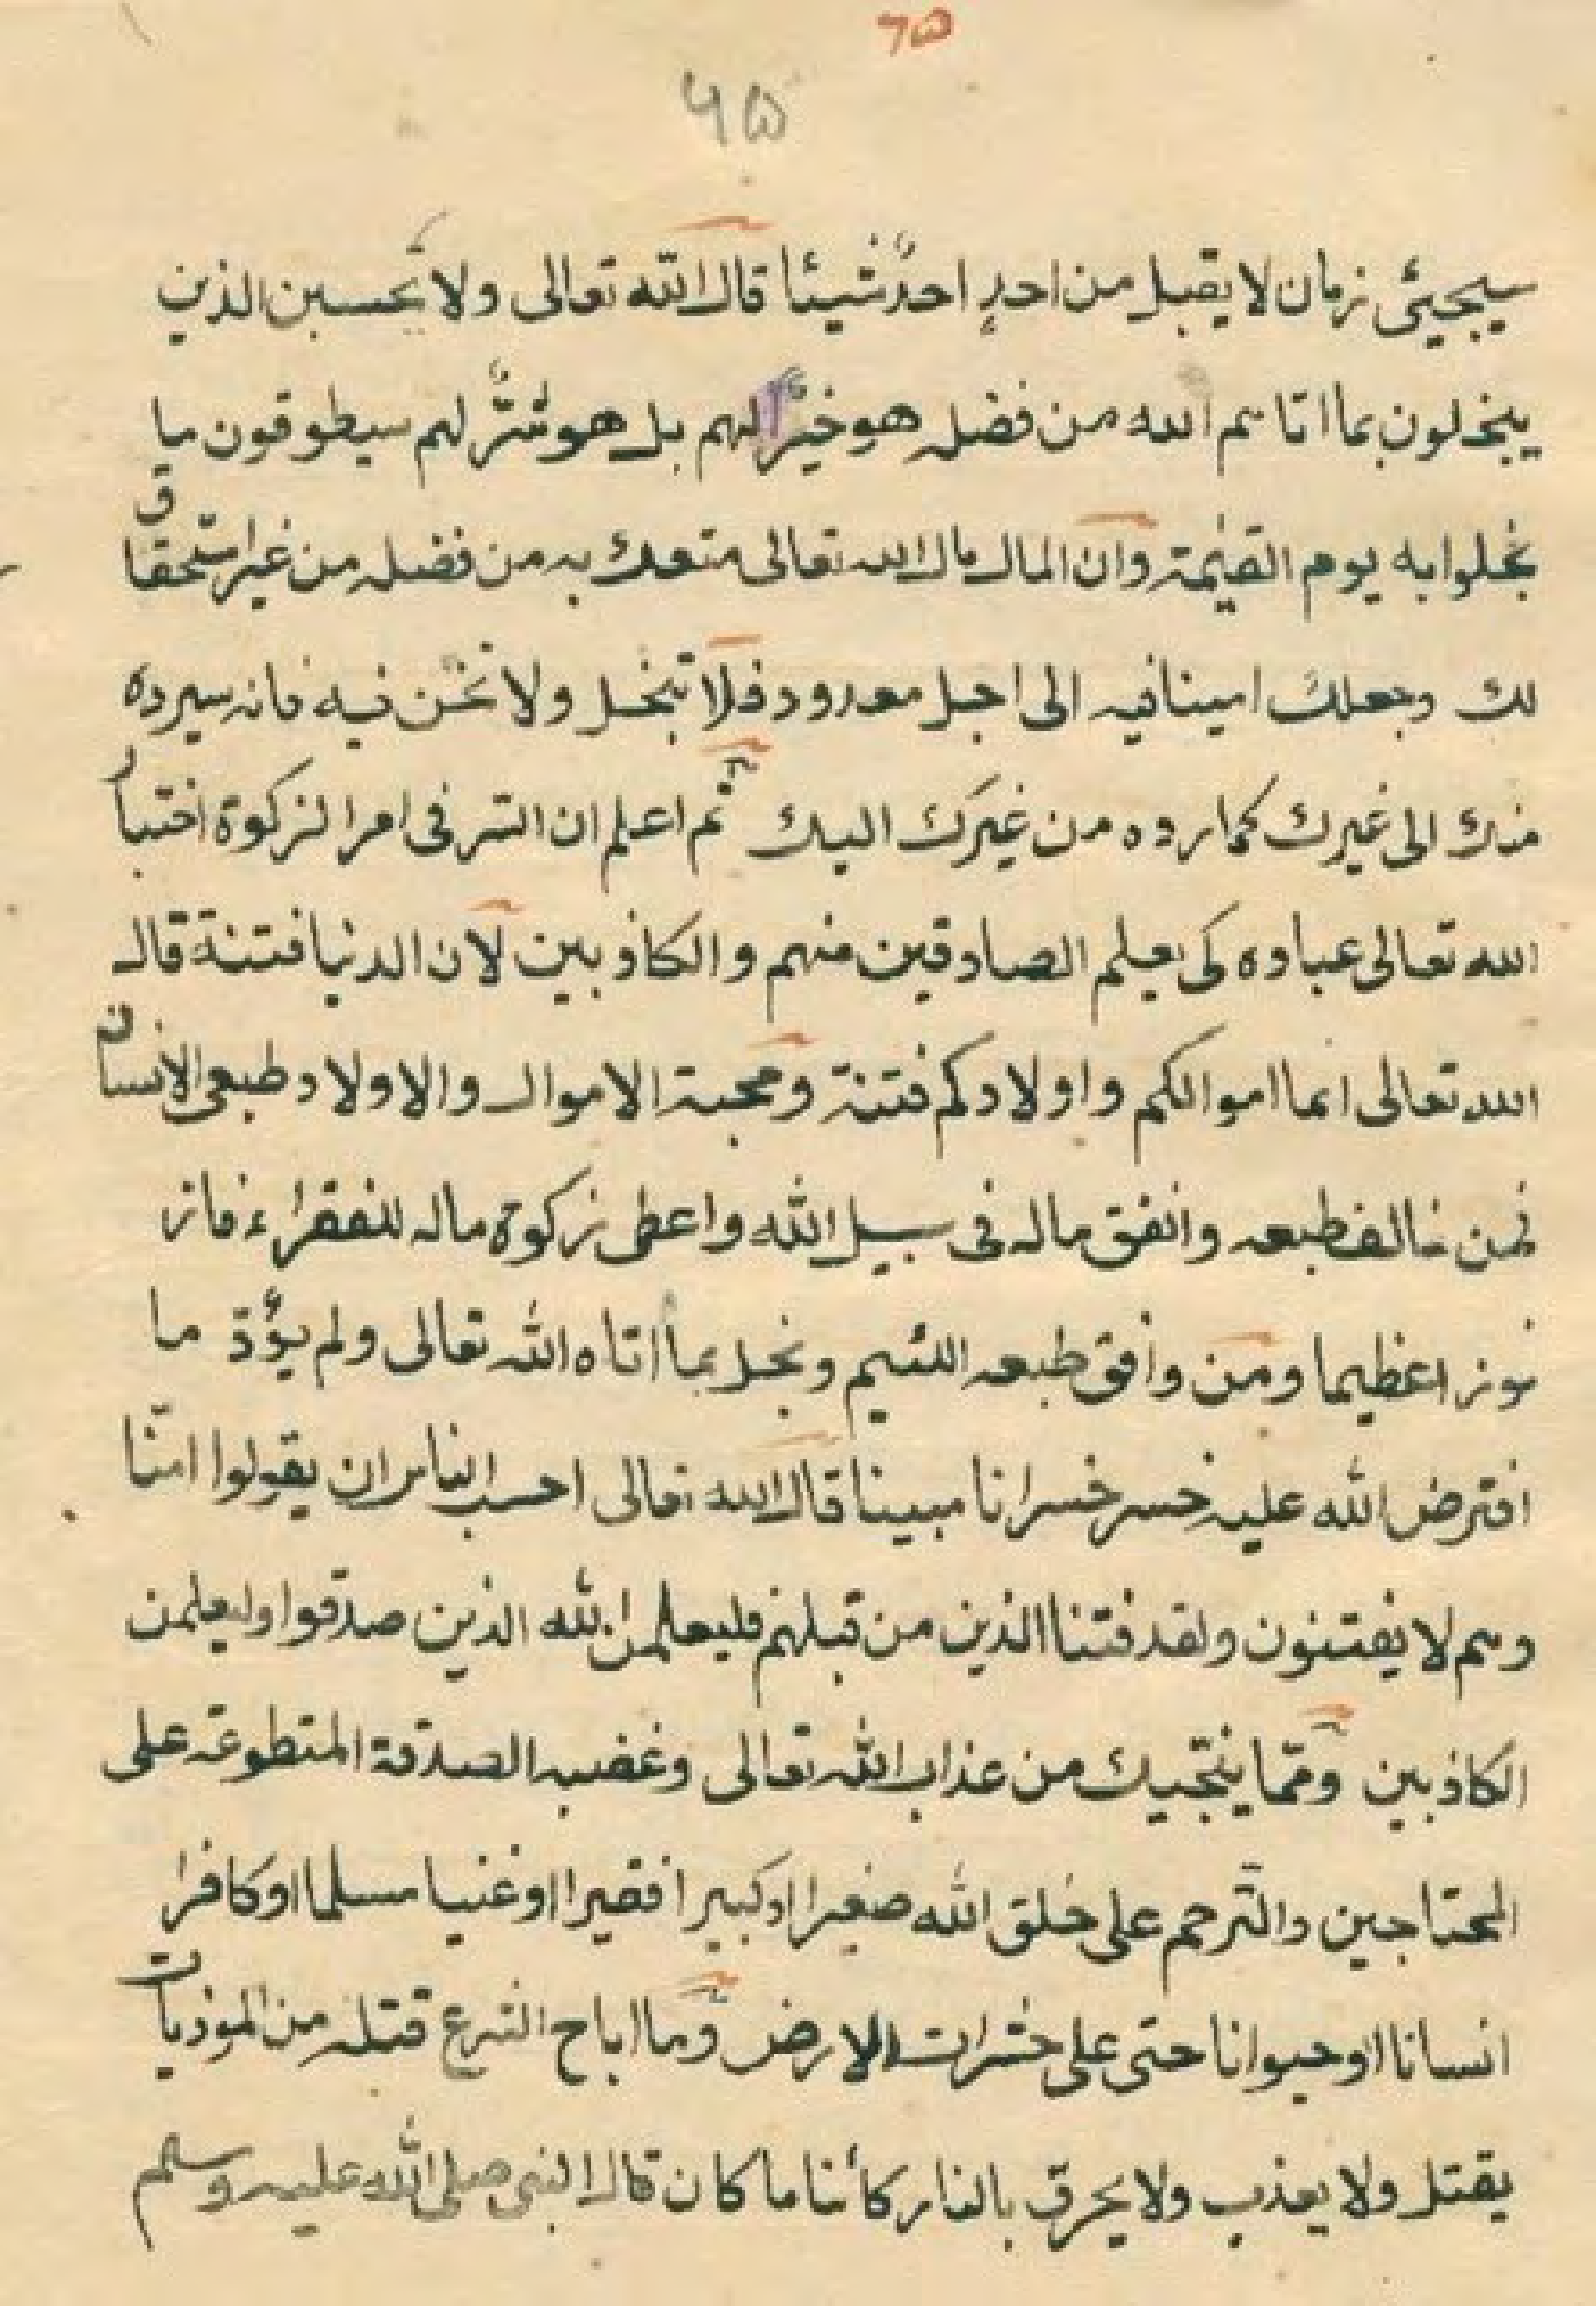 ٦٥
۶۵
سيجيئى زمان لا يقبل من احدٍ احدٌ شيئا قال الله تعالى ولا تحسبن الذين
يبخلون بما اتاهم الله من فضله هو خيرٌا لهم بل هو شرٌّ لهم سيطوقون ما
بخلوا به يوم القيٰمة وان المال مال الله تعالى متعك به من فضله من غير استحقاق
لك وجعلك امينا فيه الى اجل معدود فلا تبخل ولا تخن فيه فانه سيرده
منك الى غيرك كما رده من غيرك اليك ثم اعلم ان السر فى امر الزكوة اختبار
الله تعالى عباده كى يعلم الصادقين منهم والكاذبين لان الدنيا فتنة قال
الله تعالى انما اموالكم واولادكم فتنة ومحبة الاموال والاولاد طبعى الانسان
فمن خالف طبعه وانفق ماله فى سبيل الله واعطى زكوة ماله للفقراء فاز
فوزا عظيما ومن وافق طبعه اللئيم وبخل بما اتاه الله تعالى ولم يؤدّ ما
افترض الله عليه خسر خسرانا مبينا قال الله تعالى احسب الناس ان يقولوا امنّا
وهم لا يفتنون ولقد فتنا الذين من قبلهم فليعلمن الله الذين صدقوا وليعلمن
الكاذبين وممّا ينجّيك من عذاب الله تعالى وغضبه الصدقة المتطوعة على
المحتاجين والترحم على خلق الله صغيرا او كبيرا فقيرا او غنيا مسلما او كافرا
انسانا او حيوانا حتى على حشرات الارض وما اباح الشرع قتله من الموذيات
يقتل ولا يعذب ولا يحرق بالنار كائنا ما كان قال النبى صلى الله عليه وسلم